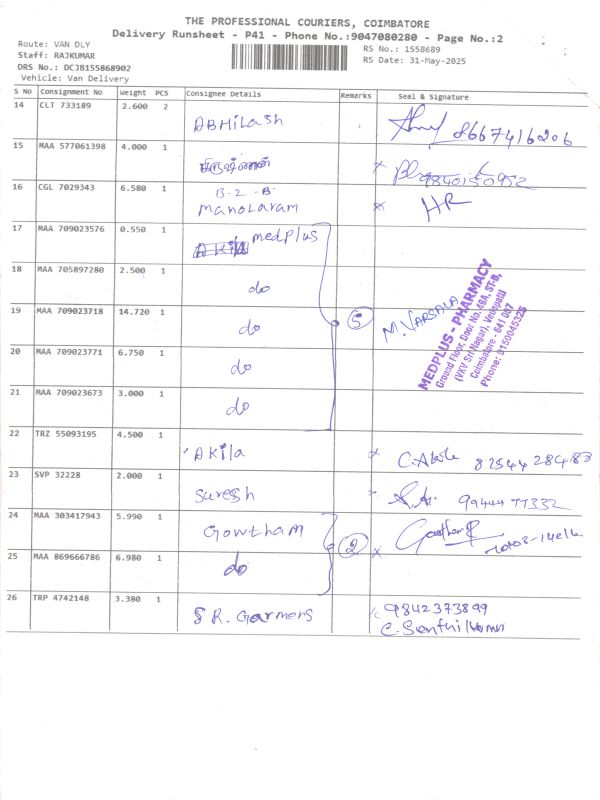 THE PROFESSIONAL COURIERS, COIMBATORE
Delivery Runsheet - P41 - Phone No.:9047080280 - Page No.:2
Route: VAN DLY
RS No.: 1558689
Staff: RAJKUMAR
RS Date: 31-May-2025
DRS No.: DCJB155868902
Vehicle: Van Delivery
S No Consignment No Weight PCS Consignee Details Remarks Seal & Signature
14 CLT 733189 2.600 2 ABHilash 8667416206
15 MAA 577061398 4.000 1 9840150952
16 CGL 7029343 6.580 1 B-2-B
Manoharam HR
17 MAA 709023576 0.550 1 medplus
18 MAA 705897280 2.500 1 do
19 MAA 709023718 14.720 1 do 5 M. VARSALA
MEDPLUS - PHARMACY
Ground Floor, Door No. 49A, ST-B,
(VKV Sri Nagar), Vedapatti
Coimbatore - 641 007
Phone: 9150045325
20 MAA 709023771 6.750 1 do
21 MAA 709023673 3.000 1 do
22 TRZ 55093195 4.500 1 AKila C.Akila 82544 28488
23 SVP 32228 2.000 1 Suresh 99444 77332
24 MAA 303417943 5.990 1 Gowtham 2
25 MAA 869666786 6.980 1 do
26 TRP 4742148 3.380 1 S R. Garmens 9842373899
C. Senthilkumar